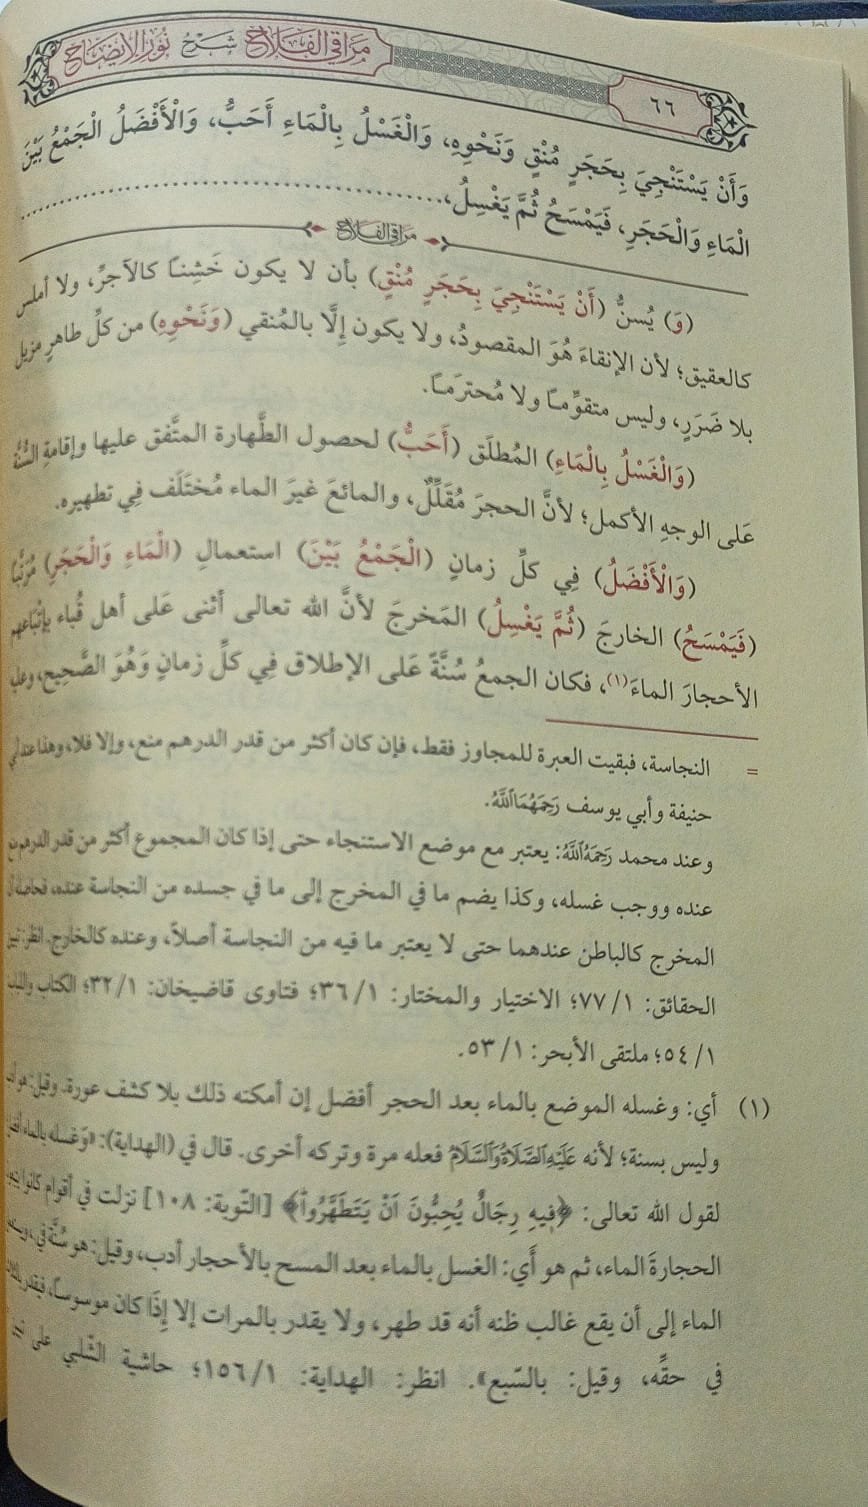 مَرَاقِي الفَلَاحِ شَرْحُ نُورِ الإِيضَاحِ
٦٦
وَأَنْ يَسْتَنْجِيَ بِحَجَرٍ مُنْقٍ وَنَحْوِهِ، وَالْغَسْلُ بِالْمَاءِ أَحَبُّ، وَالْأَفْضَلُ الْجَمْعُ بَيْنَ
الْمَاءِ وَالْحَجَرِ، فَيَمْسَحُ ثُمَّ يَغْسِلُ، ....................................
مَرَاقِي الفَلَاحِ
(وَ) يُسنُّ (أَنْ يَسْتَنْجِيَ بِحَجَرٍ مُنْقٍ) بأن لا يكون خَشِناً كالآجرِّ، ولا أملس
كالعقيق؛ لأن الإنقاءَ هُوَ المقصودُ، ولا يكون إلَّا بالمُنقي (وَنَحْوِهِ) من كلِّ طاهرٍ مزيل
بلا ضَرَرٍ، وليس متقوِّماً ولا مُحترَماً.
(وَالْغَسْلُ بِالْمَاءِ) المُطلَق (أَحَبُّ) لحصول الطَّهارة المتَّفق عليها وإقامةِ السُّنَّة
عَلى الوجهِ الأكمل؛ لأنَّ الحجرَ مُقَلِّلٌ، والمائعَ غيرَ الماء مُختَلَف فِي تطهيره.
(وَالْأَفْضَلُ) فِي كلِّ زمانٍ (الْجَمْعُ بَيْنَ) استعمالِ (الْمَاءِ وَالْحَجَرِ) مُرَتَّباً
(فَيَمْسَحُ) الخارجَ (ثُمَّ يَغْسِلُ) المَخرجَ لأنَّ الله تعالى أثنى عَلى أهل قُباء بإتْبَاعهم
الأحجارَ الماءَ(١)، فكان الجمعُ سُنَّةً عَلى الإطلاق فِي كلِّ زمانٍ وَهُوَ الصَّحِيح، وعليه
= النجاسة، فبقيت العبرة للمجاوز فقط، فإن كان أكثر من قدر الدرهم منع، وإلا فلا، وهذا عند أبي
حنيفة وأبي يوسف رَحِمَهُمَااللَّهُ.
وعند محمد رَحِمَهُاللَّهُ: يعتبر مع موضع الاستنجاء حتى إذا كان المجموع أكثر من قدر الدرهم منع
عنده ووجب غسله، وكذا يضم ما في المخرج إلى ما في جسده من النجاسة عنده، فحاصله أن
المخرج كالباطن عندهما حتى لا يعتبر ما فيه من النجاسة أصلاً، وعنده كالخارج. انظر: تبيين
الحقائق: ١/ ٧٧؛ الاختيار والمختار: ١/ ٣٦؛ فتاوى قاضيخان: ١/ ٣٢؛ الكتاب واللباب
١/ ٥٤؛ ملتقى الأبحر: ١/ ٥٣.
(١) أي: وغسله الموضع بالماء بعد الحجر أفضل إن أمكنه ذلك بلا كشف عورة. وقيل: هو أدب
وليس بسنة؛ لأنه عَلَيْهِ الصَّلَاةُوَالسَّلَامُ فعله مرة وتركه أخرى. قال في (الهداية): «وَغسله بالماء أفضل
لقول الله تعالى: ﴿فِيهِ رِجَالٌ يُحِبُّونَ أَنْ يَتَطَهَّرُواْ﴾ [التّوبة: ١٠٨] نزلت في أقوام كانوا يتبعون
الحجارةَ الماء، ثم هو أَي: الغسل بالماء بعد المسح بالأحجار أدب، وقيل: هو سُنَّة في
الماء إلى أن يقع غالب ظنه أنه قد طهر، ولا يقدر بالمرات إلا إِذَا كان موسوساً، فيقدر بالثلاث
في حقِّه، وقيل: بالسّبع». انظر: الهداية: ١/ ١٥٦؛ حاشية الشّلبي على